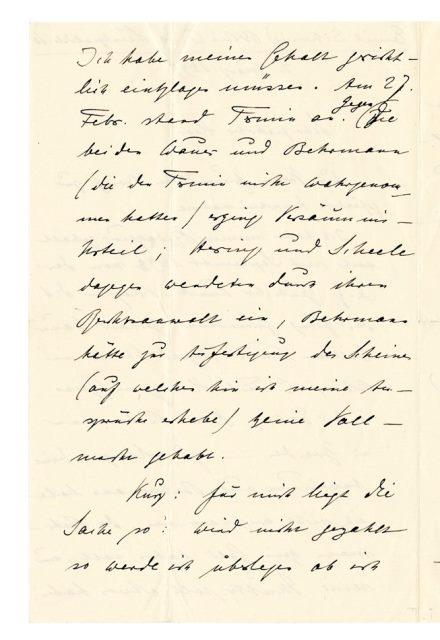 Ich habe meinen Gehalt gericht-
lich einklagen müssen. Am 27.
Febr. stand Termin an. Gegen die
beiden Wauer und Behrmann
(die den Termin nicht wahrgenom-
men hatten) erging Versäumnis-
Urteil; Hering und Scheele
dagegen wendeten durch ihren
Rechtsanwalt ein, Behrmann
hätte zur Ausfertigung des Scheines
(auf welchen hin ich meine An-
sprüche erhebe) keine Voll-
macht gehabt.
Kurz: für mich liegt die
Sache so: wird nicht gezahlt
so werde ich überlegen ob ich